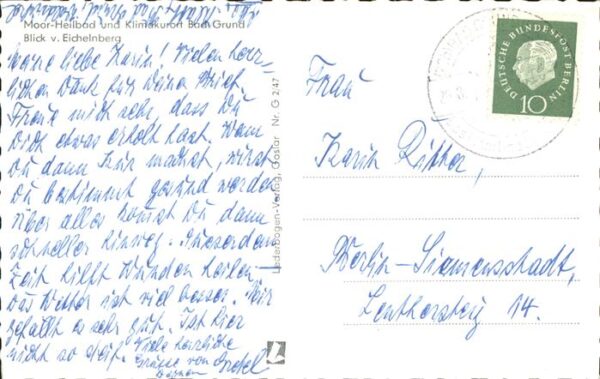 Moor-Heilbad und Klimakurort Bad Grund
Blick v. Eichelnberg
Meine liebe Karin! Vielen herz-
lichen Dank für Deinen Brief.
Freue mich sehr, dass Du
Dich etwas erholt hast. Wenn
Du dann Kur machst, wirst
Du bestimmt gesund werden
über alles kommst Du dann
schneller hinweg. Ausserdem
Zeit hilft Wunden heilen –
Das Wetter ist viel besser. Mir
gefällt es sehr gut. Ist hier
nicht so steif. Viele herzliche
Grüsse von Gretel
Lederbogen-Verlag, Goslar Nr. G 2/47
DEUTSCHE BUNDESPOST BERLIN
10
Frau
Karin Ritter,
Berlin-Siemensstadt,
Lenthersteig 14.